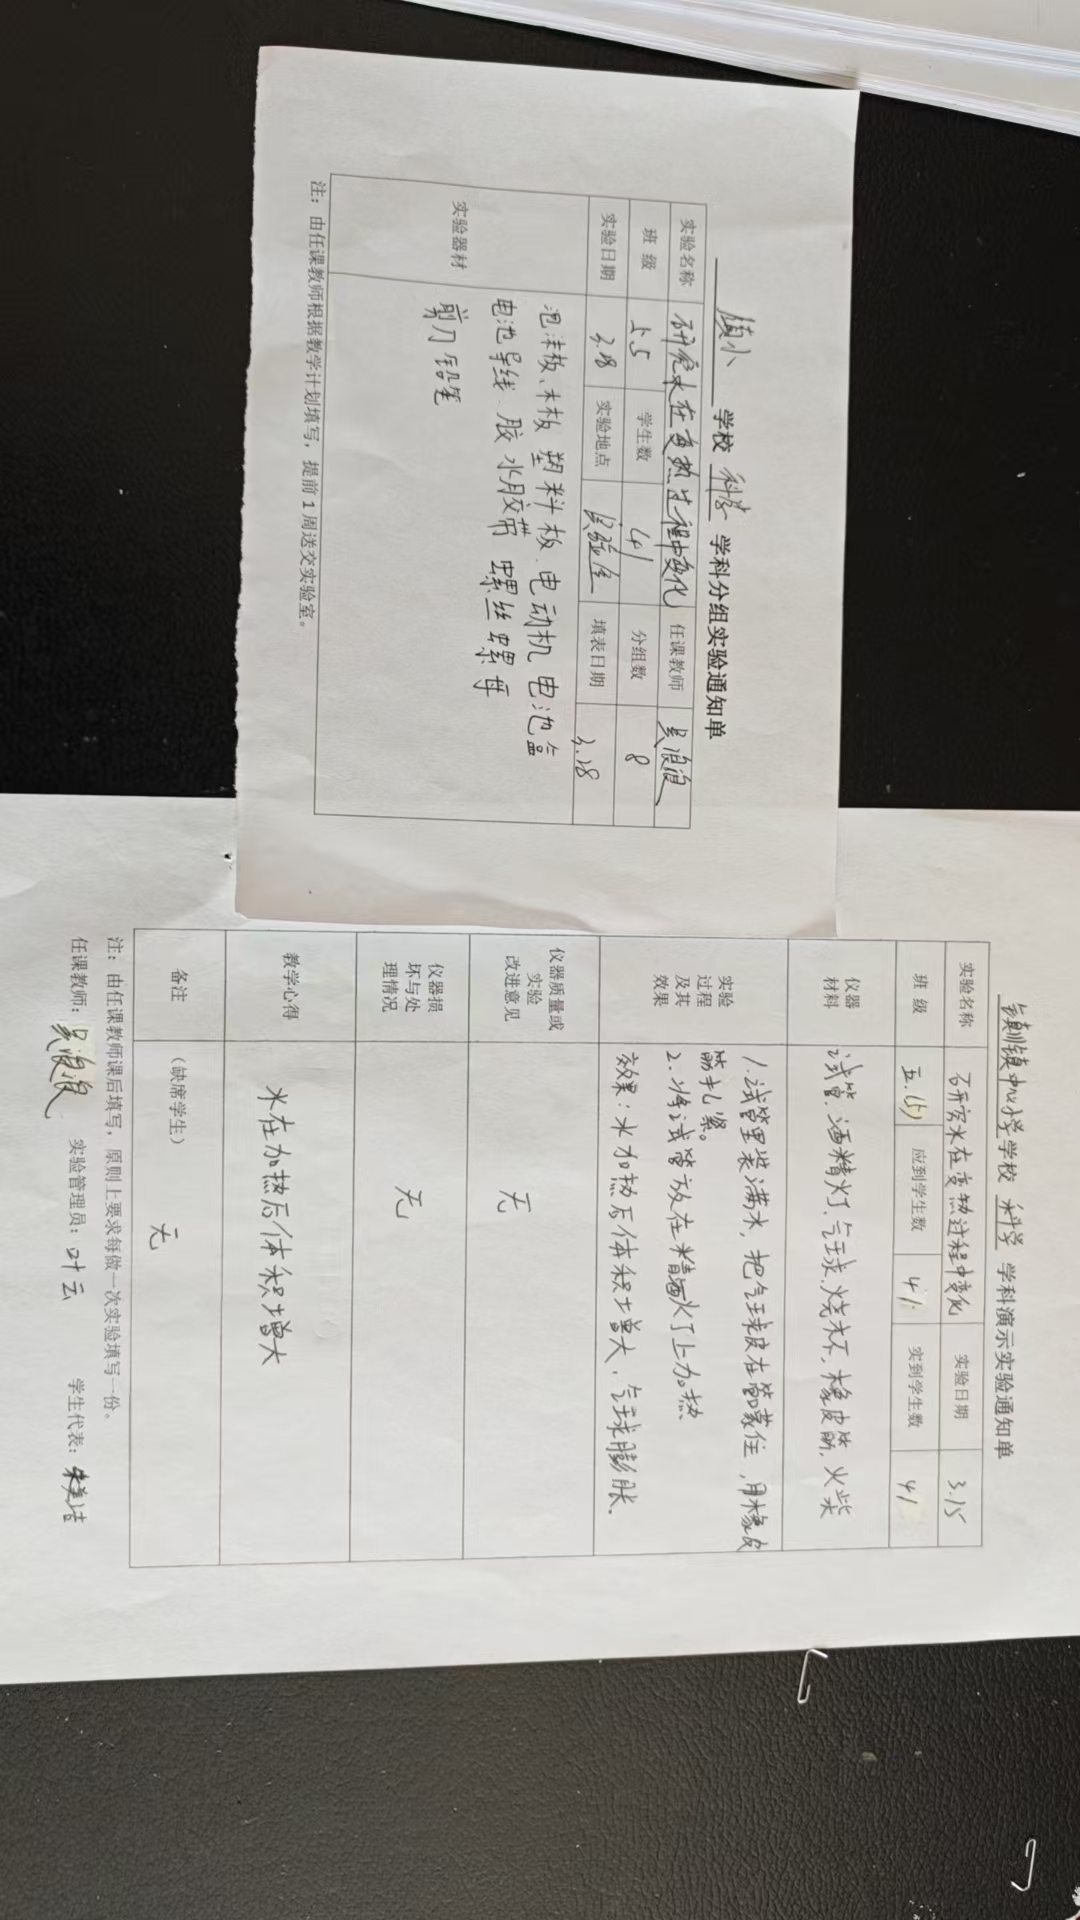 镇小 学校 科学 学科分组实验通知单
实验名称 研究水在变热过程中变化 任课教师 吴浪浪
班 级 五.5 学生数 41 分组数 8
实验日期 3.8 实验地点 实验室 填表日期 3.18
实验器材 泡沫板、木板 塑料板、电动机 电池盒
电池 导线、胶水胶带 螺丝螺母
剪刀 铅笔
注：由任课教师根据教学计划填写，提前1周送交实验室。
镇中心小学学校 科学 学科演示实验通知单
实验名称 研究水在变热过程中变化 实验日期 3.15
班 级 五.(5) 应到学生数 41 实到学生数 41
仪器材料 试管、酒精灯、气球、烧杯，橡皮筋，火柴
实验过程及其效果 1.试管里装满水，把气球皮在管蒙住，用橡皮
筋扎紧。
2.将试管放在精酒灯上加热
效果：水加热后体积增大，气球膨胀.
仪器质量或实验改进意见 无
仪器损坏与处理情况 无
教学心得 水在加热后体积增大
备注 (缺席学生) 无
注：由任课教师课后填写，原则上要求每做一次实验填写一份。
任课教师：吴浪浪 实验管理员：叶云 学生代表：朱美洁